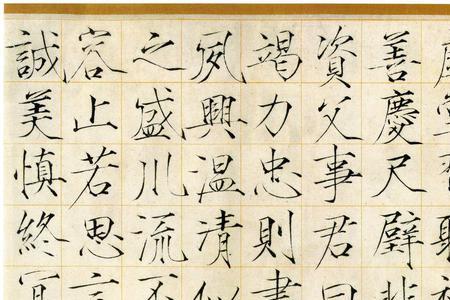 善慶尺璧非
資父事君曰
竭力忠則盡
夙興温清似
之盛川流不
容止若思言
誠美慎終宜